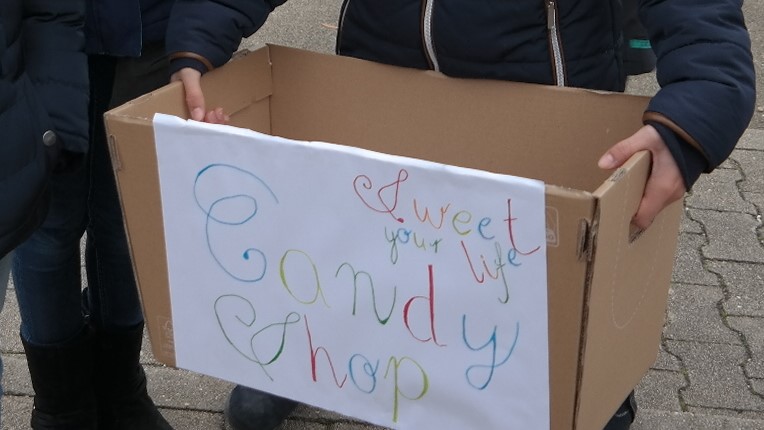 Candy
Shop
Sweet
your
life